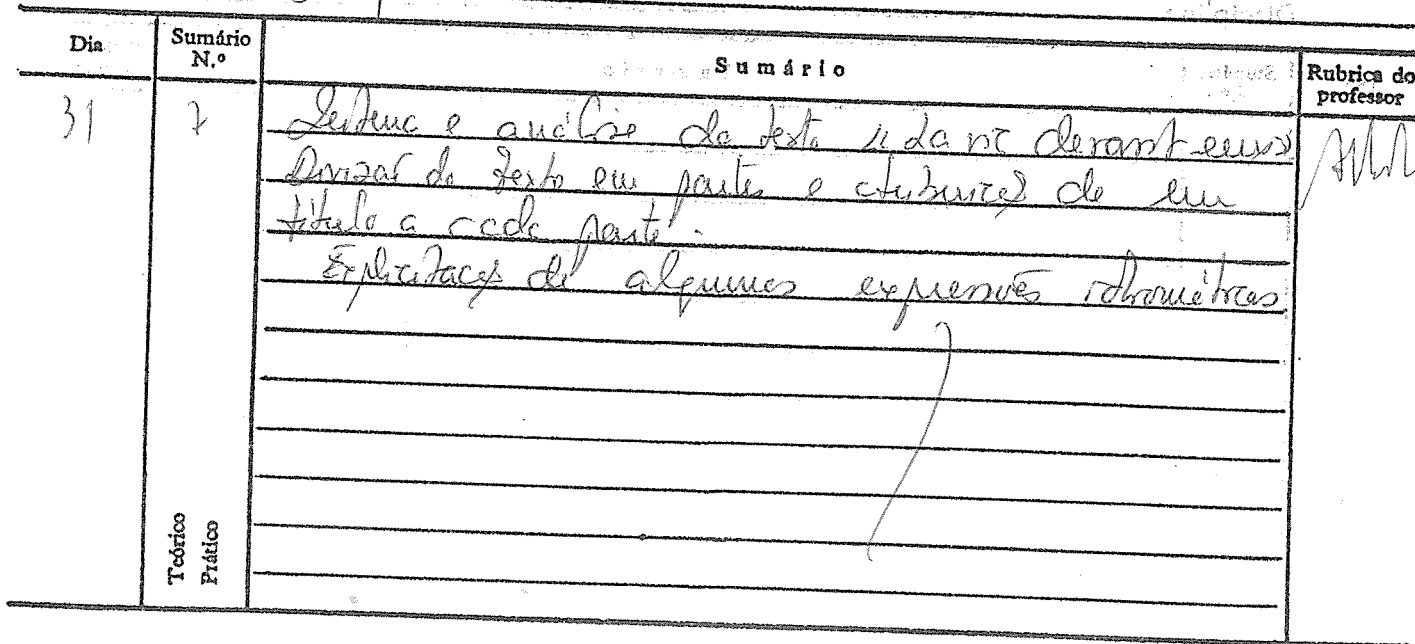 Dia
Sumário N.º
Sumário
Rubrica do professor
31
7
Leitura e análise do texto « La vie devant eux»
Divisão do texto em partes e atribuição de um
título a cada parte.
Explicitação de algumas expressões idiomáticas
Teórico
Prático